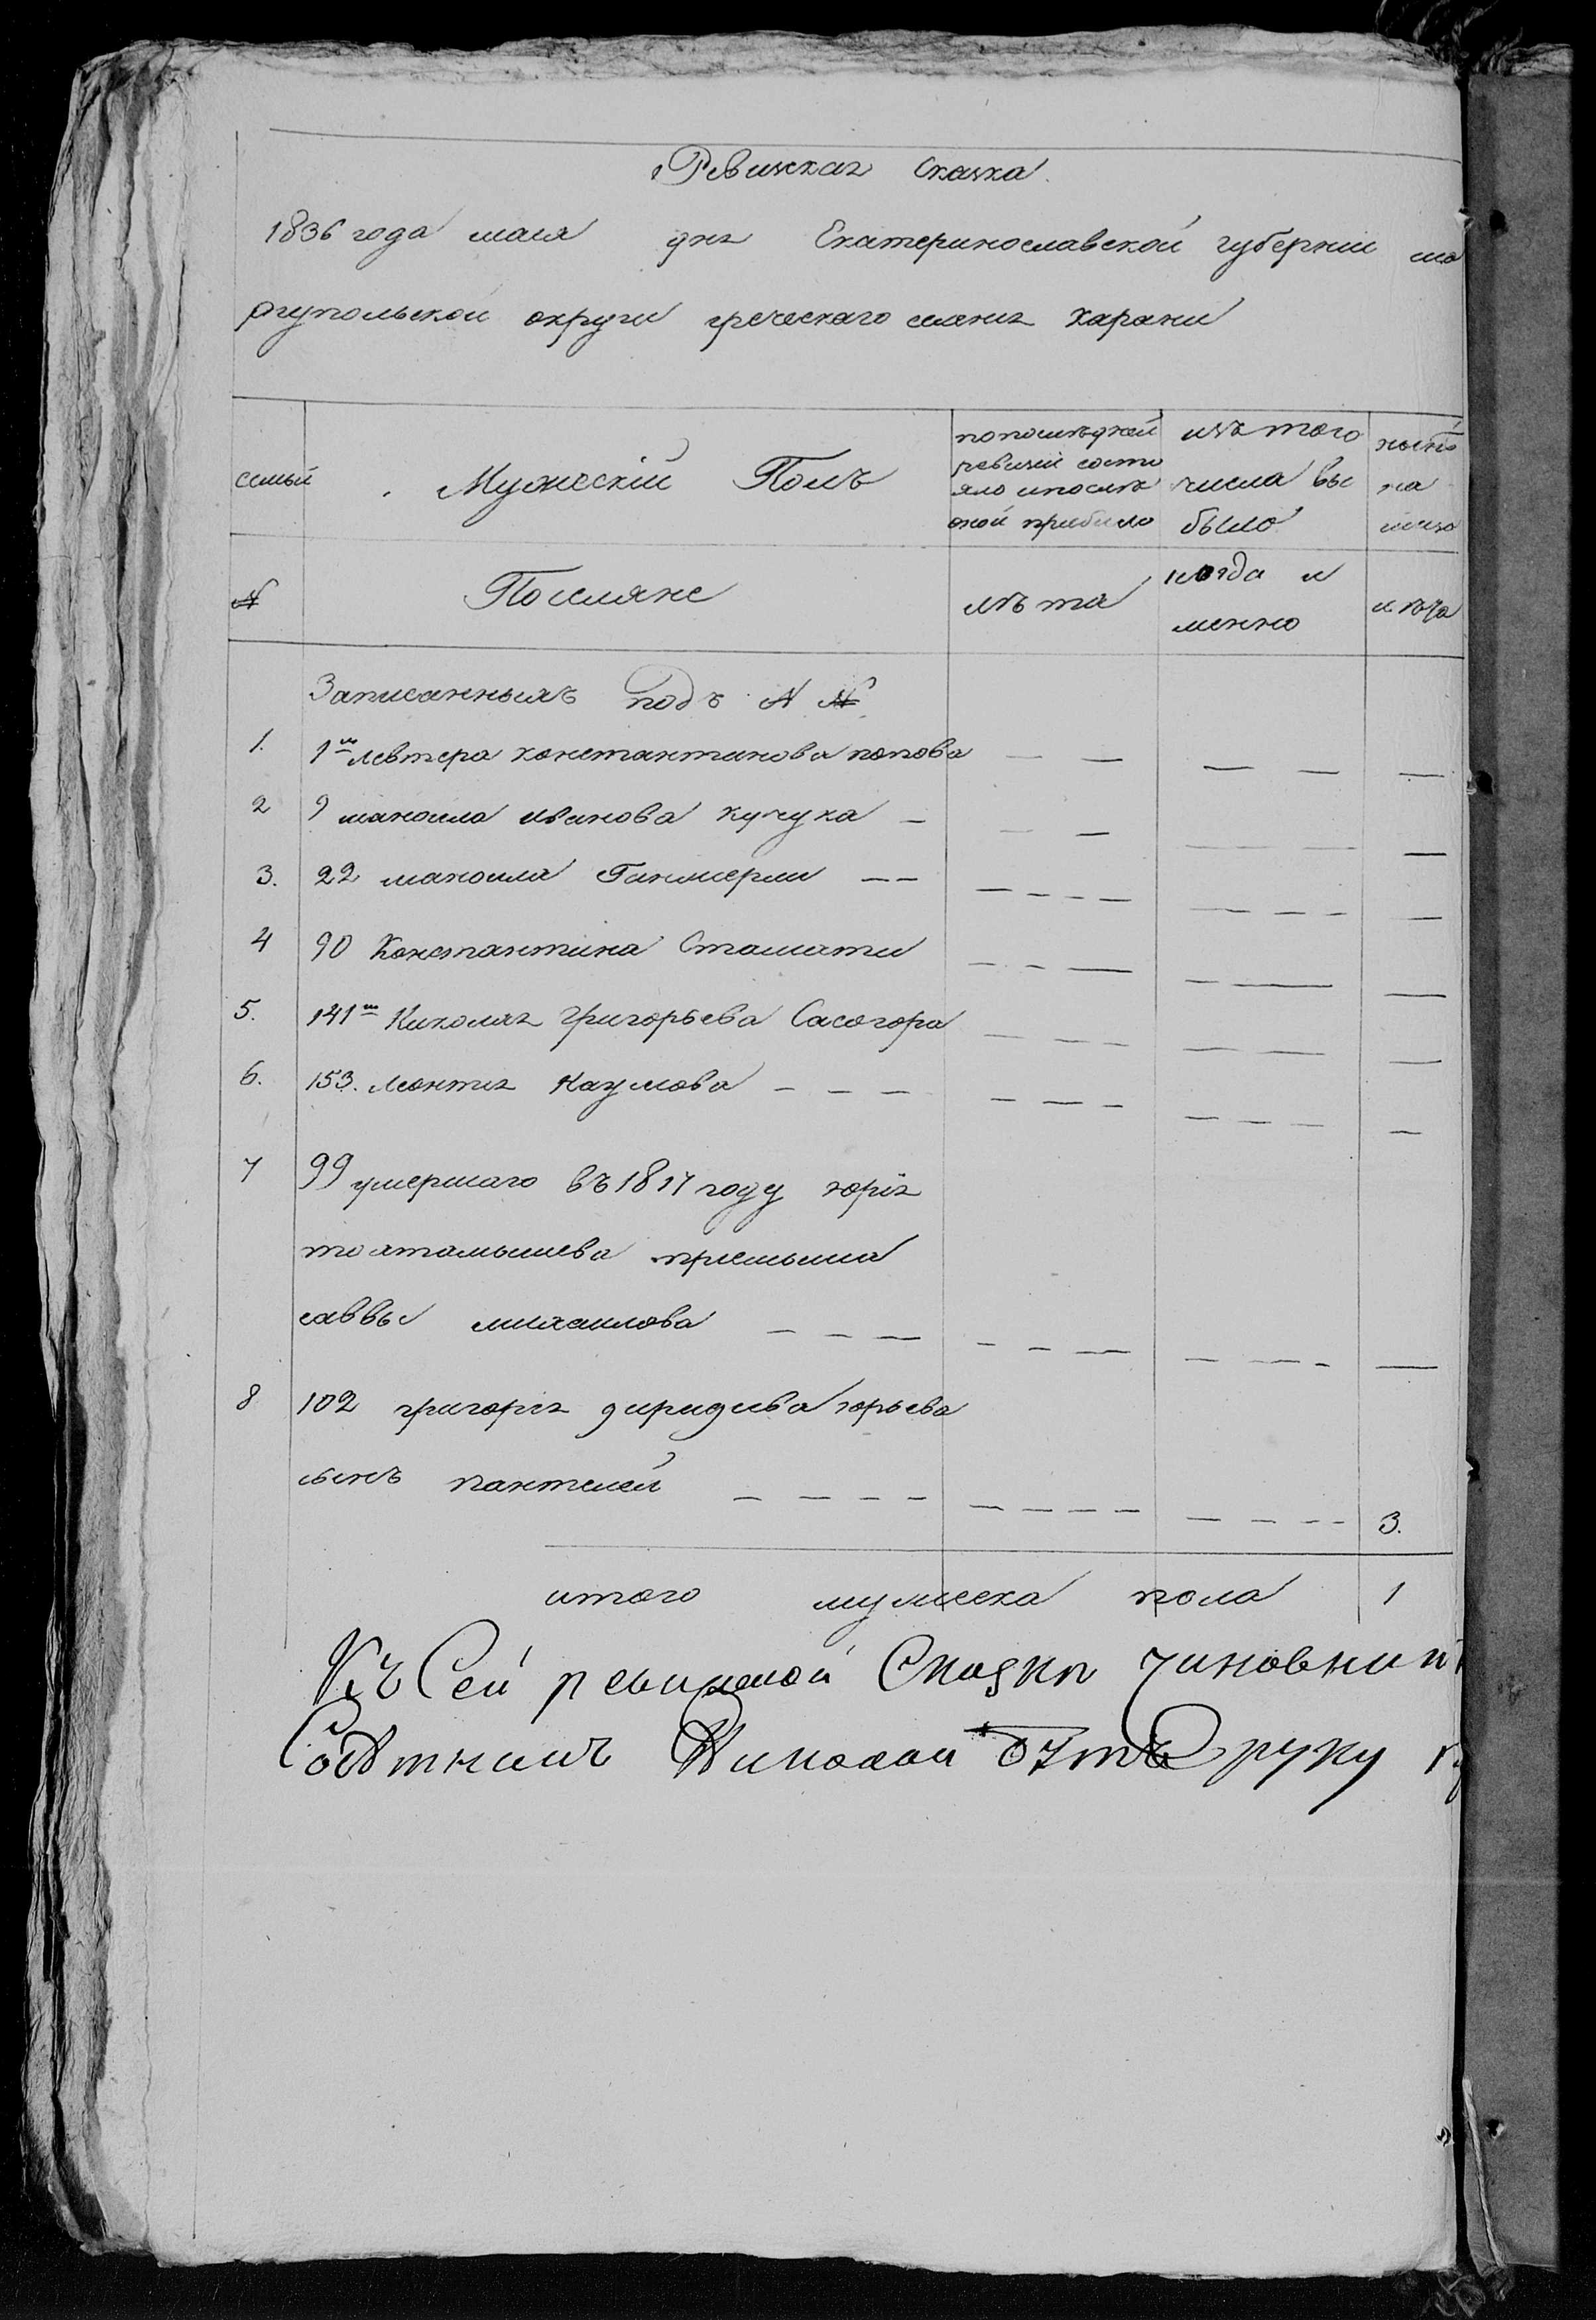 Ревизская Сказка.
1836 года маия дня Екатеринославской губернии ма
риупольской округи греческаго селения Карани
семьи
Мужеский Полъ
попоследней ревизии состояло ипосле оной прибыло
изъ того числа выбыло
ныне на лицо
№
Поселяне
лѣта
когда именно
лѣта
Записанныхъ подъ № №
1. 1м Левтера Константинова Попова — — — — —
2 9 маноила Иванова Кучука — — — — — —
3. 22 маноила — — — — — — — — — —
4 90 Константина Стамати — — — — — —
5. 141м Николая Григорьева Сасогора — — — — — —
6. 153. Леонтия Наумова — — — — — — — — — —
7 99 умершаго въ 1817 году юрия
тохтамышева приемыша
саввы михаилова — — — — — — — — — —
8 102 григория диридиева юрьева
сынъ пантелей — — — — — — — — — — — — 3.
итого мужеска пола 1
Къ Сей ревизской Сказки чиновник
Николай руку